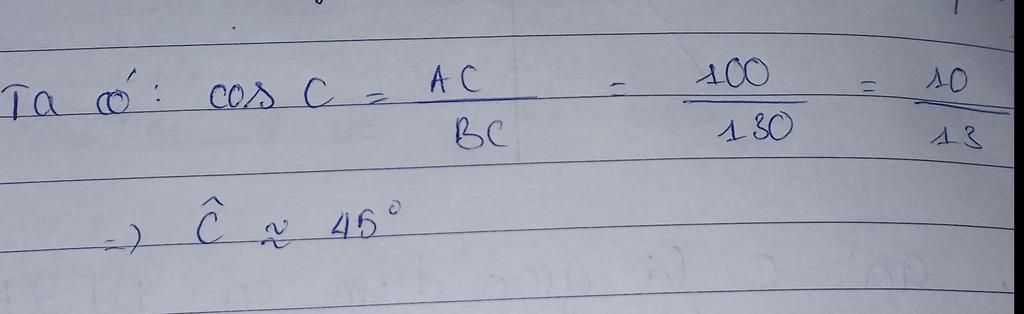 Ta có: cos C = AC/BC = 100/130 = 10/13
=> Ĉ ≈ 45°